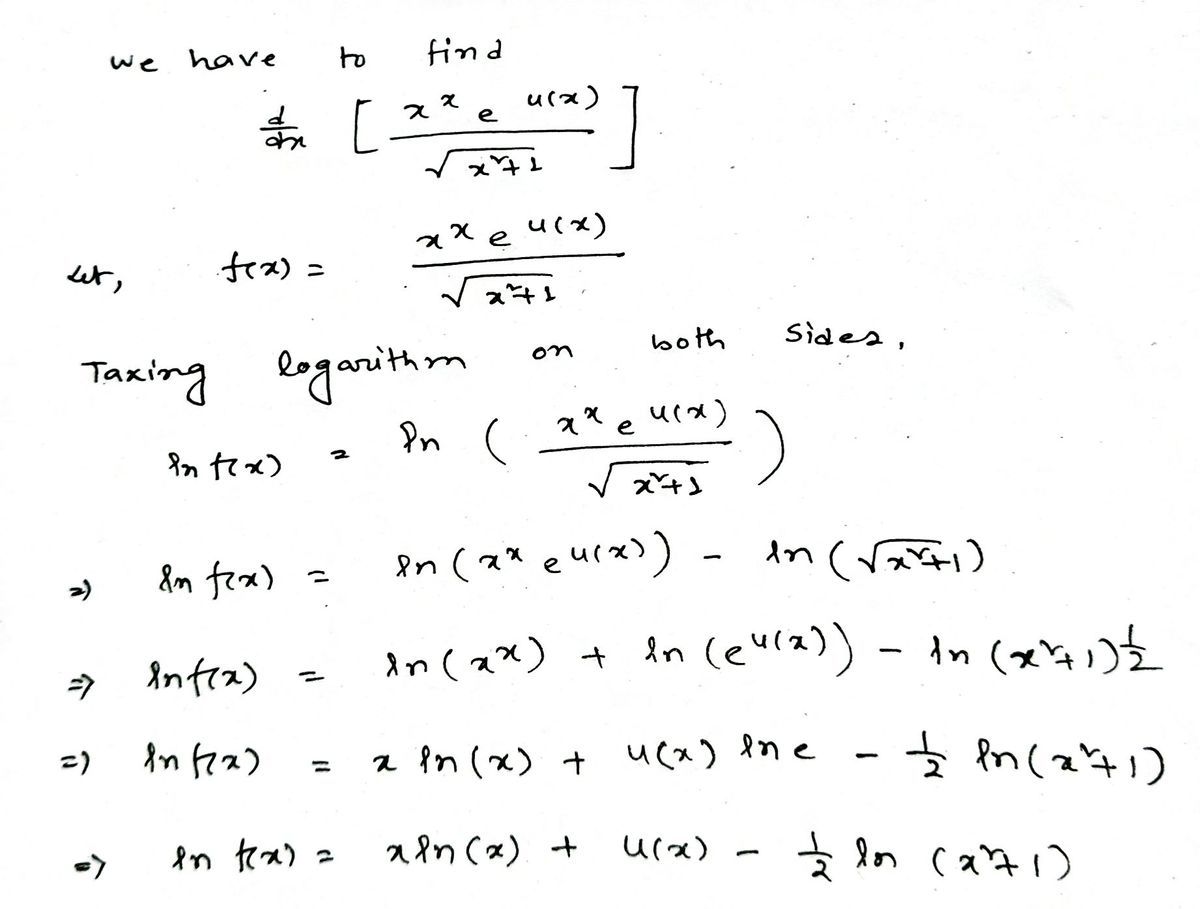 we have to find
d/dx [ x^x e^u(x) / √(x²+1) ]
Let, f(x) = x^x e^u(x) / √(x²+1)
Taking logarithm on both sides,
ln f(x) = ln ( x^x e^u(x) / √(x²+1) )
=> ln f(x) = ln (x^x e^u(x)) - ln (√(x²+1))
=> ln f(x) = ln (x^x) + ln (e^u(x)) - ln (x²+1)^1/2
=> ln f(x) = x ln (x) + u(x) ln e - 1/2 ln (x²+1)
=> ln f(x) = x ln (x) + u(x) - 1/2 ln (x²+1)